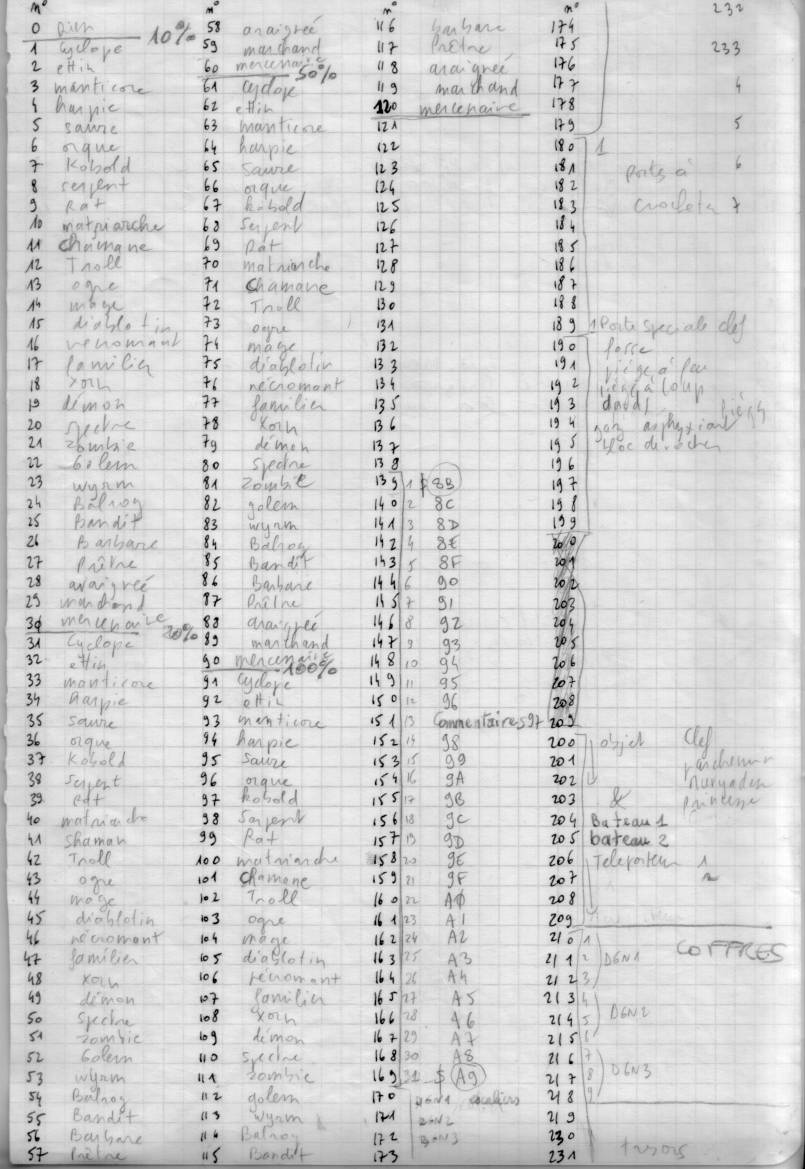 n°
0 Rien 10%
1 Cyclope
2 ettin
3 manticore
4 harpie
5 saure
6 orque
7 Kobold
8 serpent
9 Rat
10 matriarche
11 chamane
12 Troll
13 ogre
14 mage
15 diablotin
16 necromant
17 familier
18 xorn
19 démon
20 spectre
21 zombie
22 Golem
23 wyrm
24 Balrog
25 Bandit
26 Barbare
27 Prêtre
28 araignée
29 marchand
30 mercenaire 20%
31 Cyclope
32 ettin
33 manticore
34 harpie
35 saure
36 orque
37 Kobold
38 serpent
39 Rat
40 matriarche
41 shaman
42 Troll
43 ogre
44 mage
45 diablotin
46 nécromant
47 familier
48 xorn
49 démon
50 spectre
51 zombie
52 Golem
53 wyrm
54 Balrog
55 Bandit
56 Barbare
57 Prêtre
n°
58 araignée
59 marchand
60 mercenaire 50%
61 Cyclope
62 ettin
63 manticore
64 harpie
65 saure
66 orque
67 kobold
68 Serpent
69 Rat
70 matriarche
71 Chamane
72 Troll
73 ogre
74 mage
75 diablotin
76 nécromant
77 familier
78 xorn
79 démon
80 spectre
81 zombie
82 golem
83 wyrm
84 Balrog
85 Bandit
86 Barbare
87 Prêtre
88 araignée
89 marchand
90 mercenaire 100%
91 Cyclope
92 ettin
93 manticore
94 harpie
95 saure
96 orque
97 kobold
98 Serpent
99 Rat
100 matriarche
101 Chamane
102 Troll
103 ogre
104 mage
105 diablotin
106 nécromant
107 familier
108 xorn
109 démon
110 spectre
111 zombie
112 golem
113 wyrm
114 Balrog
115 Bandit
n°
116 barbare
117 Prêtre
118 araignée
119 marchand
120 mercenaire
121
122
123
124
125
126
127
128
129
130
131
132
133
134
135
136
137
138
139 1 $ 8B
140 2 8C
141 3 8D
142 4 8E
143 5 8F
144 6 90
145 7 91
146 8 92
147 9 93
148 10 94
149 11 95
150 12 96
151 13 Commentaires 97
152 14 98
153 15 99
154 16 9A
155 17 9B
156 18 9C
157 19 9D
158 20 9E
159 21 9F
160 22 AØ
161 23 A1
162 24 A2
163 25 A3
164 26 A4
165 27 A5
166 28 A6
167 29 A7
168 30 A8
169 31 $ A9
170 DGN1 escaliers
171 DGN2
172 DGN3
173
n°
174
175
176
177
178
179
180 1
181 portes à
182
183 crocheter
184
185
186
187
188
189 1 Porte speciale clef
190 fosse
191 piège à feu
192 piège à loup
193 dards pièges
194 gaz asphyxiant
195 bloc de rocher
196
197
198
199
200
201
202
203
204
205
206
207
208
209
200 objet clef
201 parchemin
202
203 & princesse
204 Bateau 1
205 bateau 2
206 Teleporteur 1
207 2
208
209
210 1
211 2 DGN1 COFFRES
212 3
213 4
214 5 DGN2
215 6
216 7
217 8 DGN3
218 9
219
230
231 tresors
232
233
4
5
6
7